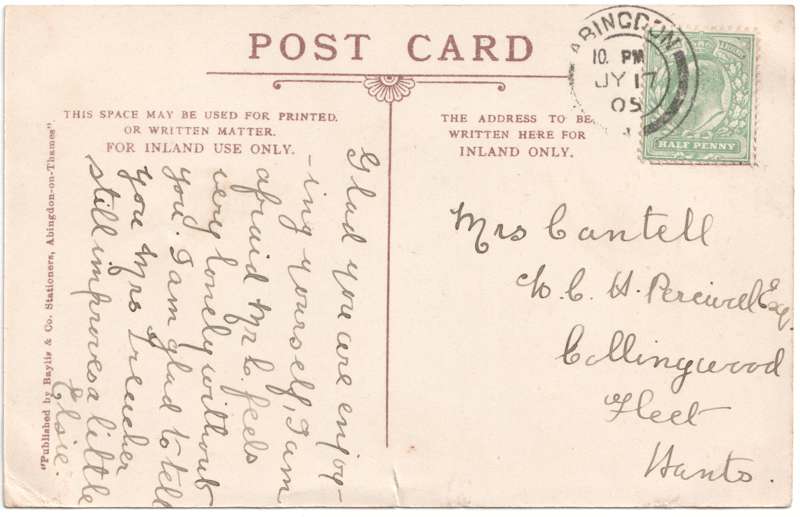 POST CARD
ABINGDON
10. PM
JY 17
05
HALF PENNY
THIS SPACE MAY BE USED FOR PRINTED.
OR WRITTEN MATTER.
FOR INLAND USE ONLY.
THE ADDRESS TO BE
WRITTEN HERE FOR
INLAND ONLY.
Glad you are enjoy-
-ing yourself, I am
afraid Mr C. feels
very lonely without
you. I am glad to tell
you Mrs
still improves a little
Elsie.
Mrs Cantell
C. H. Percival Esq.
Collingwood
Fleet
Hants.
"Published by Baylis & Co. Stationers, Abingdon-on-Thames".